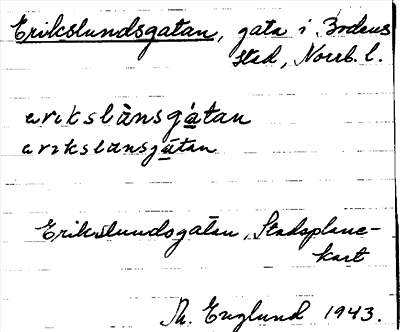 Erikslundsgatan, gata i Bodens
stad, Norrb. l.
erikslànsgátan
erikslansgátan
Erikslundsgatan, Stadsplane-
kart
Th. Englund 1943.